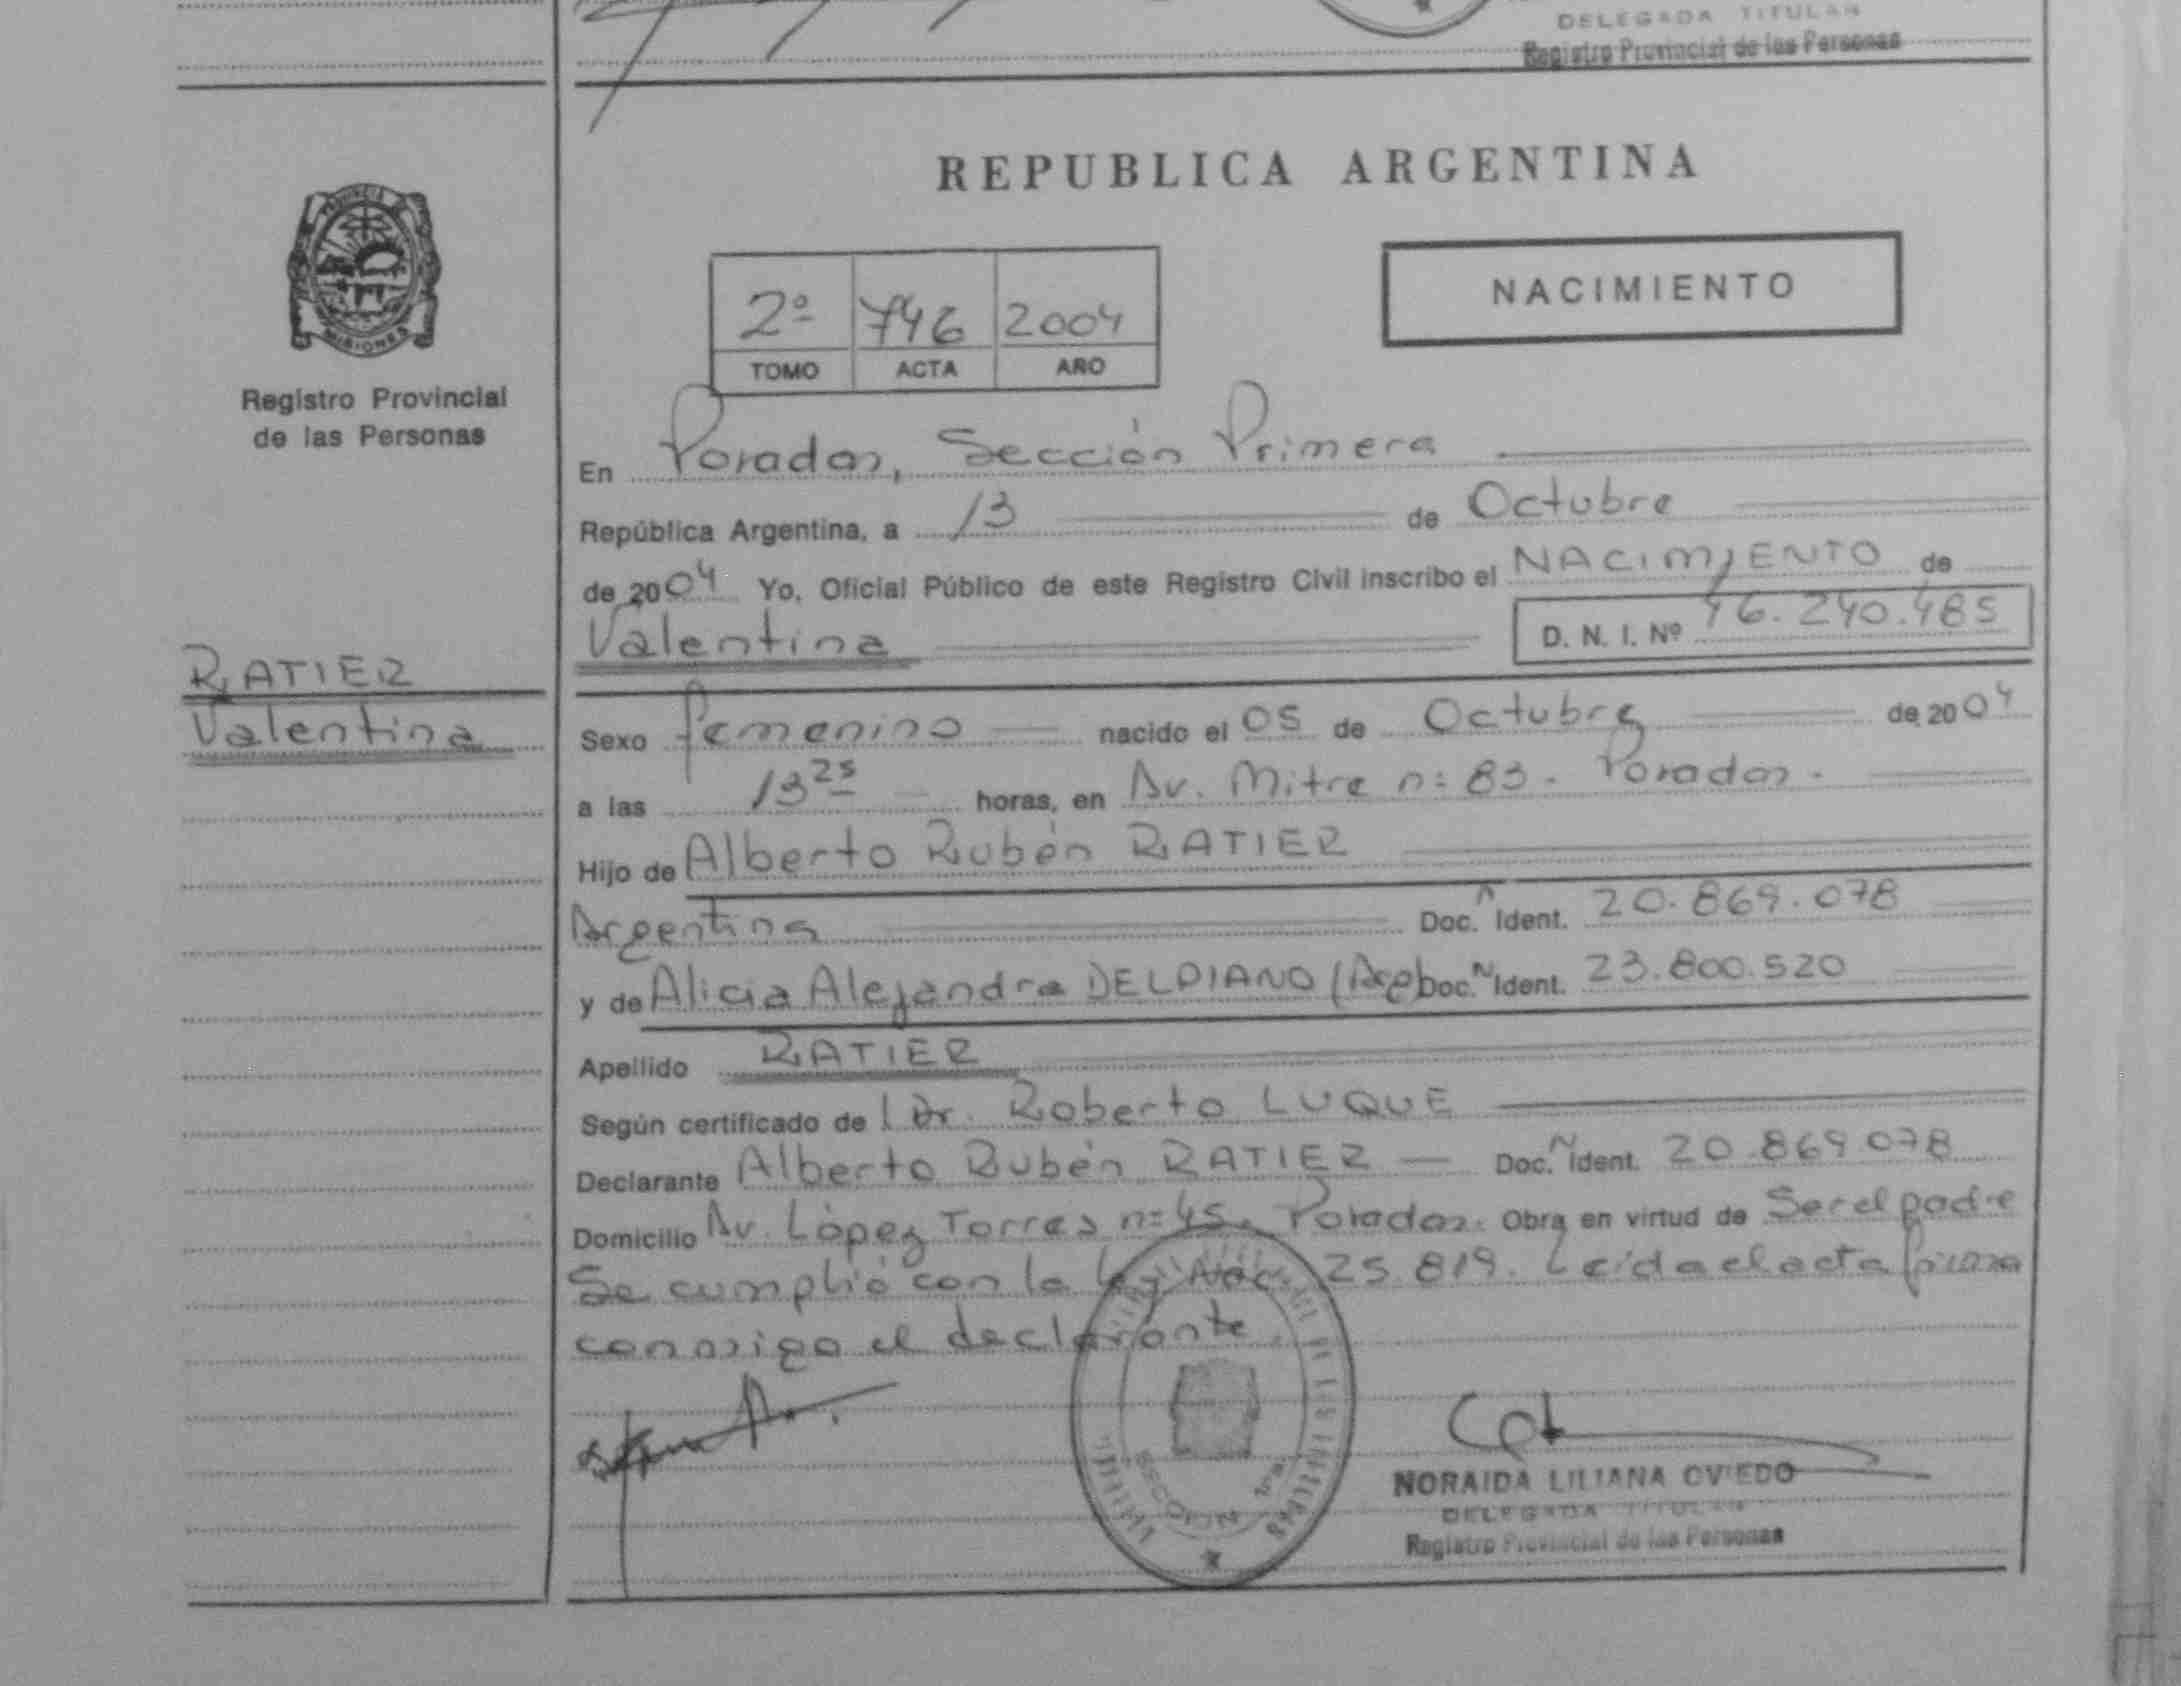 DELEGADA TITULAR
Registro Provincial de las Personas
PROVINCIA DE
MISIONES
Registro Provincial
de las Personas
REPUBLICA ARGENTINA
2º 746 2004
TOMO ACTA AÑO
NACIMIENTO
En Posadas, Sección Primera
República Argentina, a 13 de Octubre
de 2004 Yo, Oficial Público de este Registro Civil inscribo el NACIMIENTO de
Valentina D. N. I. Nº 46.240.485
RATIER
Valentina
Sexo femenino nacido el 05 de Octubre de 2004
a las 13 25 horas, en Av. Mitre n= 83. Posadas.
Hijo de Alberto Rubén RATIER
Argentina Doc. Ident. 20.869.078
y de Alicia Alejandra DELPIANO (Arg) Doc. Ident. 23.800.520
Apellido RATIER
Según certificado de Dr. Roberto LUQUE
Declarante Alberto Rubén RATIER Doc. Ident. 20.869.078
Domicilio Av. López Torres n= 45. Posadas. Obra en virtud de Ser el padre
Se cumplió con la Ley Nac. 25.819. Leída el acta firma
conmigo el declarante.
NORAIDA LILIANA OVIEDO
DELEGADA TITULAR
Registro Provincial de las Personas